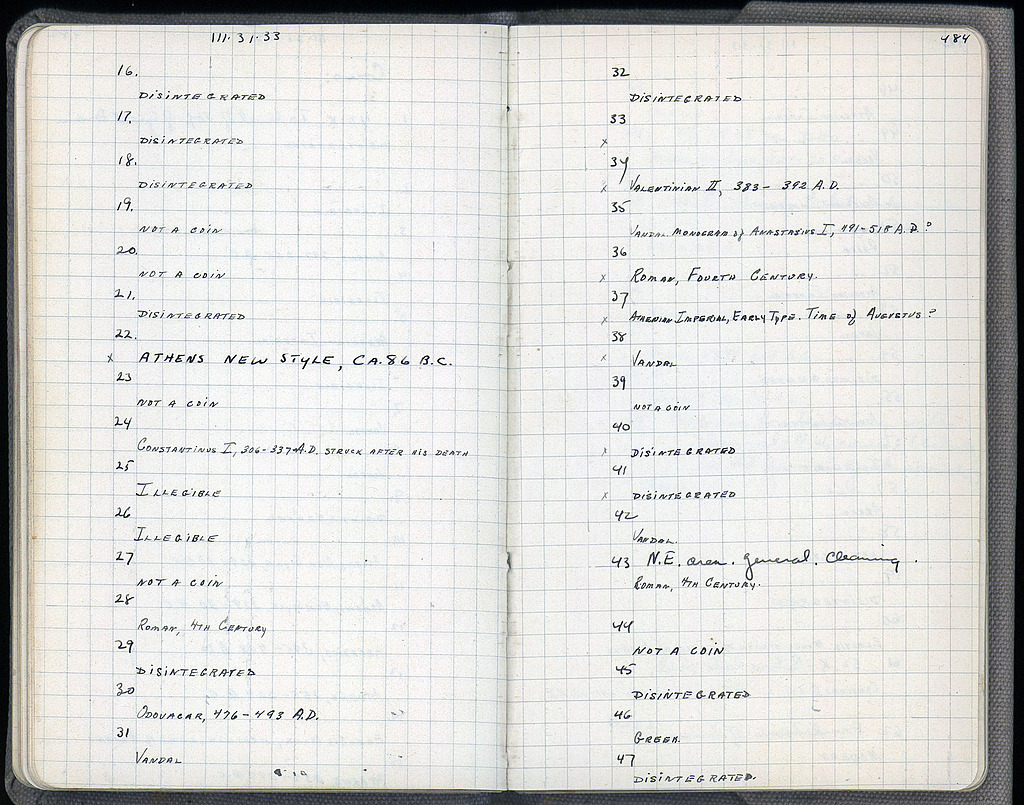 111·31·33
16.
DISINTEGRATED
17.
DISINTEGRATED
18.
DISINTEGRATED
19.
NOT A COIN
20.
NOT A COIN
21.
DISINTEGRATED
22.
x ATHENS NEW STYLE, CA. 86 B.C.
23
NOT A COIN
24
CONSTANTINUS I, 306-337 A.D. STRUCK AFTER HIS DEATH
25
ILLEGIBLE
26
ILLEGIBLE
27
NOT A COIN
28
ROMAN, 4TH CENTURY
29
DISINTEGRATED
30
ODOVACAR, 476-493 A.D.
31
VANDAL
484
32
DISINTEGRATED
33
x
34
x VALENTINIAN II, 383- 392 A.D.
35
VANDAL. MONOGRAM of ANASTASIUS I, 491-518 A.D.?
36
x ROMAN, FOURTH CENTURY.
37
x ATHENIAN IMPERIAL, EARLY TYPE. TIME of AUGUSTUS?
38
x VANDAL
39
NOT A COIN
40
x DISINTEGRATED
41
x DISINTEGRATED
42
VANDAL.
43 N.E. area. general. Cleaning.
ROMAN, 4TH CENTURY.
44
NOT A COIN
45
DISINTEGRATED
46
GREEK.
47
DISINTEGRATED.